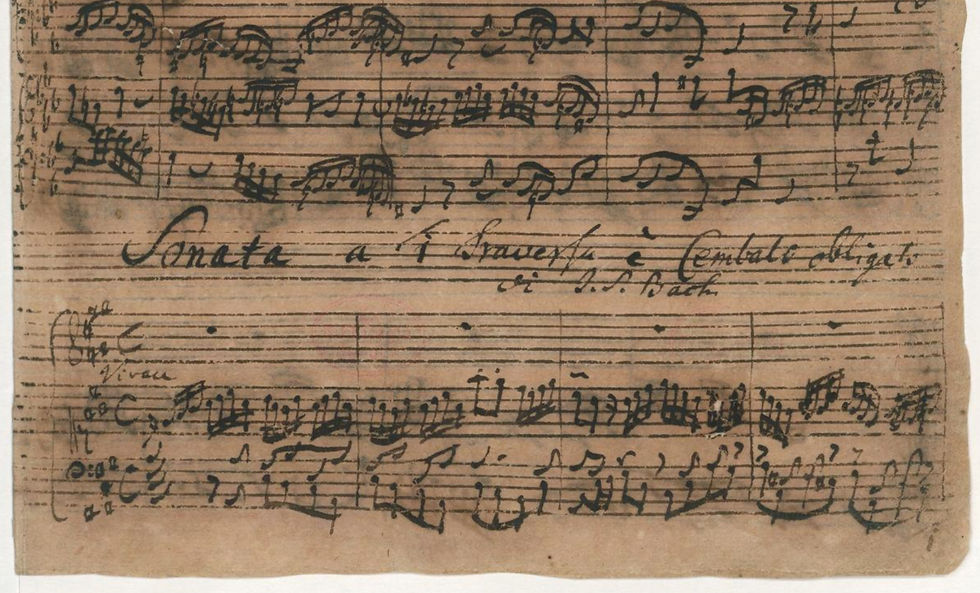 Sonata a 1 Traversa è Cembalo obligato
di J. S. Bach
Vivace